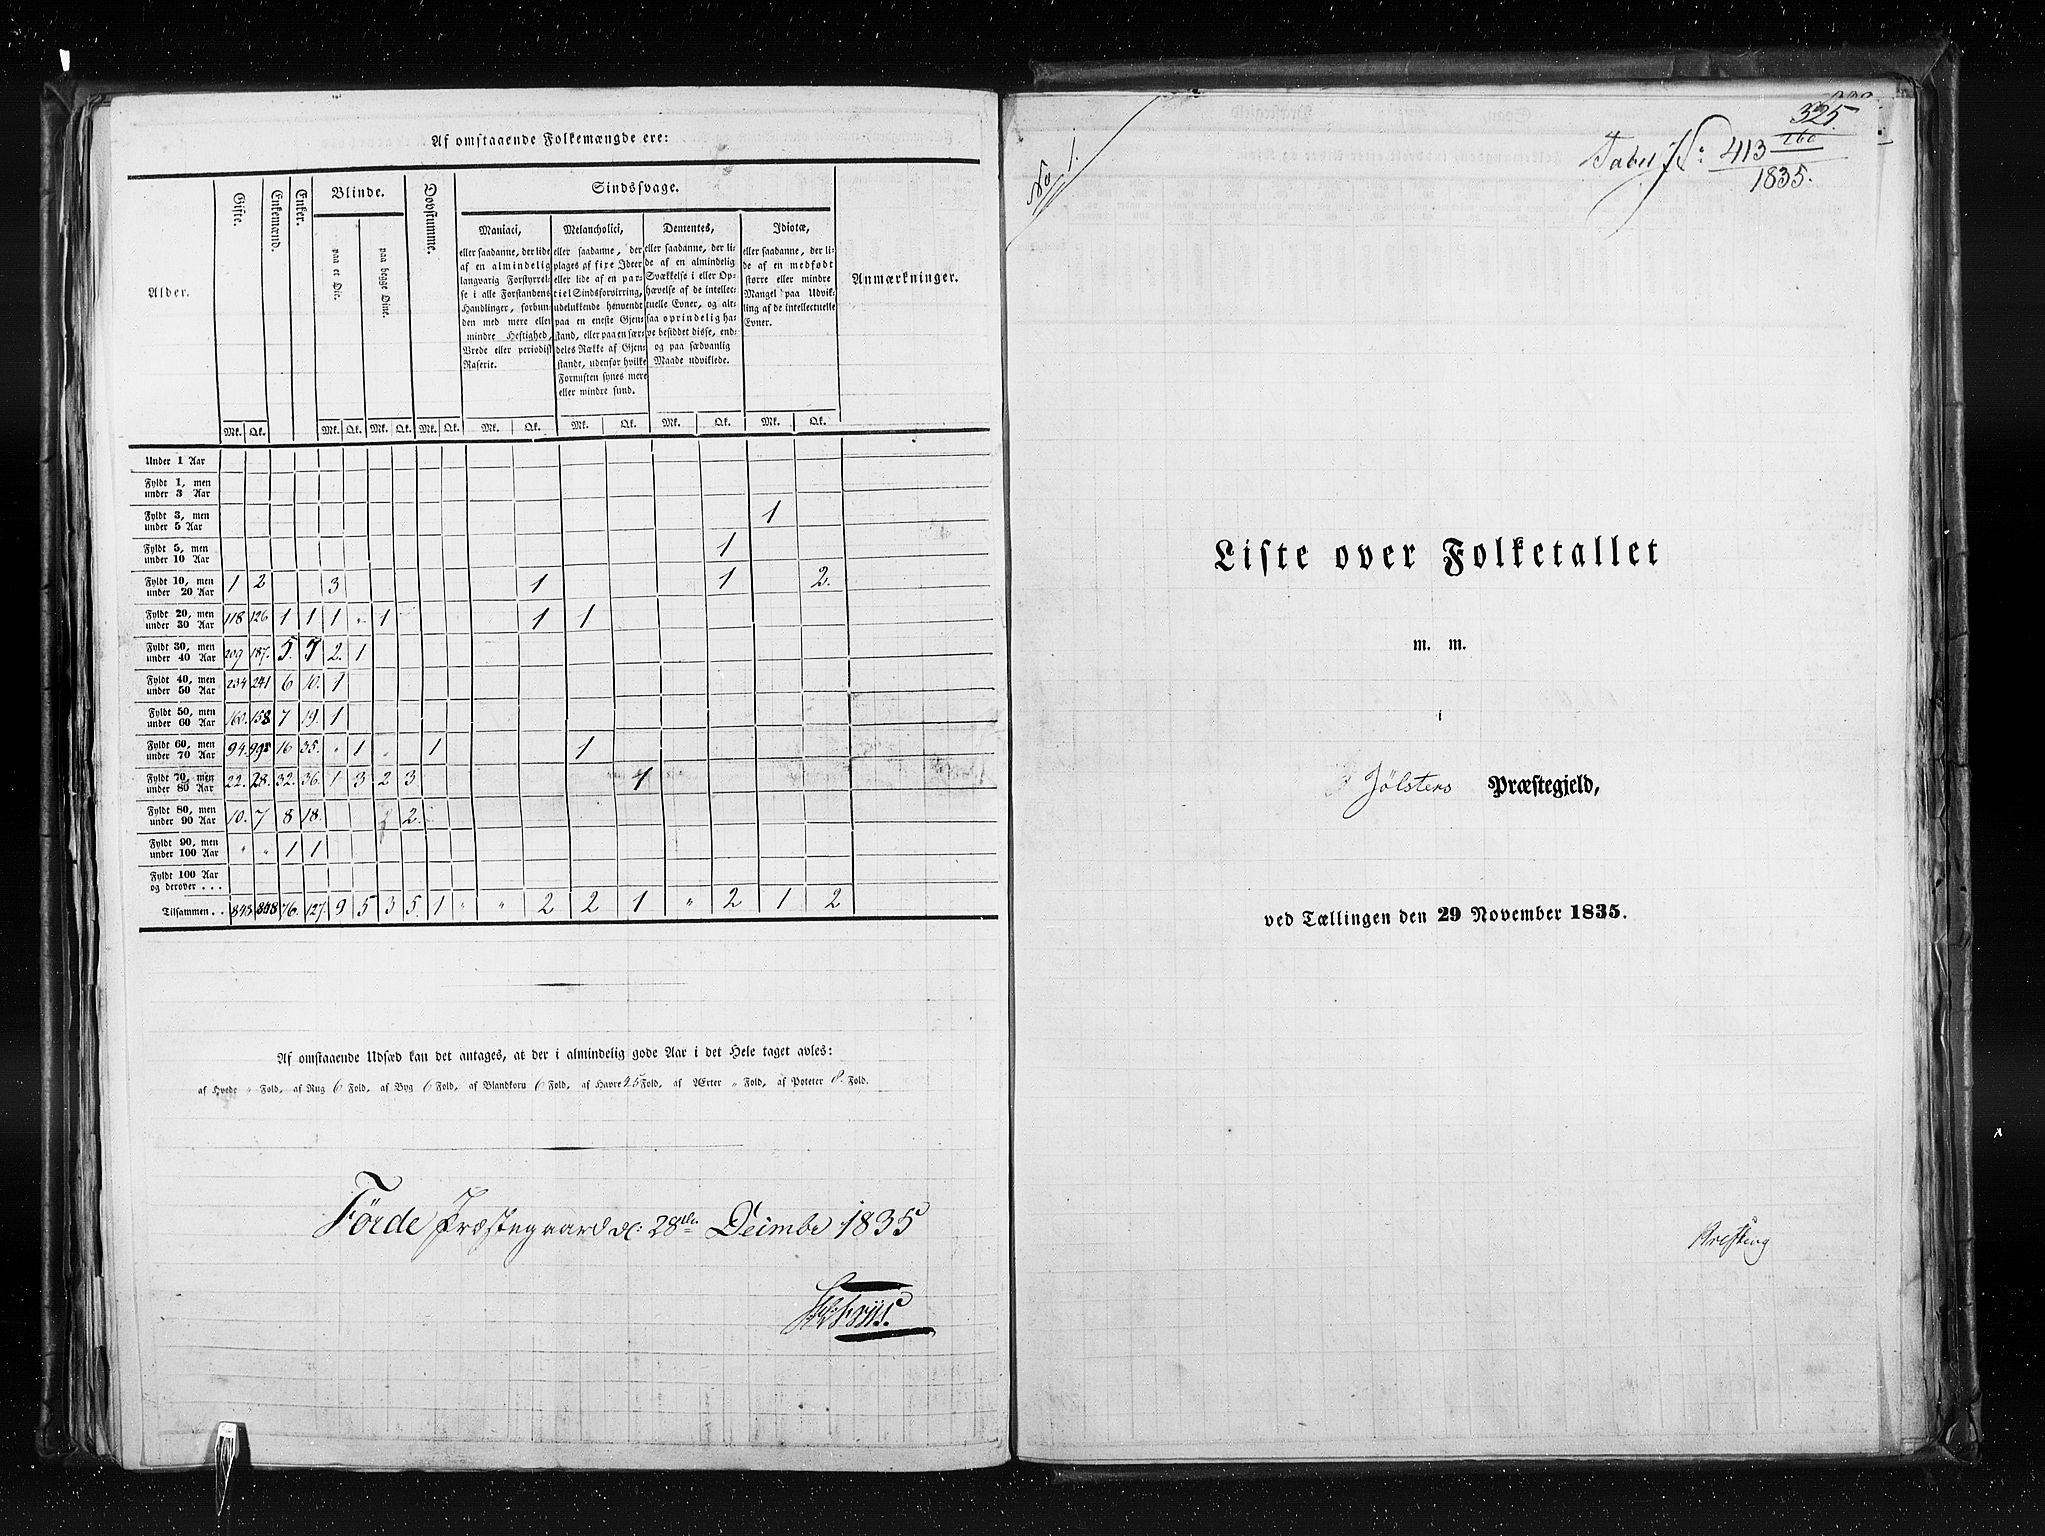 Af omstaaende Folkemængde ere:
Alder. Gifte. Enkemænd. Enker. Blinde. Døvstumme. Sindssvage. Anmærkninger.
paa et Øie. paa begge Øine.
Maniaci,
eller saadanne, der lide
af en almindelig
langvarig Forstyrrel-
se i alle Forstandens
Handlinger, forbun-
den med mere eller
mindre Heftighed,
Vrede eller periodisk
Raserie.
Melancholici,
eller saadanne, der
plages af fixe Ideer
eller lide af en par-
tiel Sindsforvirring,
udelukkende henvendt
paa en eneste Gjen-
stand, eller paa en sær-
deles Række af Gjen-
stande, udenfor hvilke
Fornuften synes mere
eller mindre sund.
Dementes,
eller saadanne, der li-
de af en almindelig
Svækkelse i eller Op-
hævelse af de intellec-
tuelle Evner, og alt-
saa oprindelig ha-
ve besiddet disse, end-
og paa sædvanlig
Maade udviklede.
Idiotæ,
eller saadanne, der li-
de af en medfødt
større eller mindre
Mangel paa Udvik-
ling af de intellectuelle
Evner.
Mk. Qk. Mk. Qk. Mk. Qk. Mk. Qk. Mk. Qk. Mk. Qk. Mk. Qk. Mk. Qk.
Under 1 Aar
Fyldt 1, men
under 3 Aar
Fyldt 3, men
under 5 Aar 1
Fyldt 5, men
under 10 Aar 1
Fyldt 10, men
under 20 Aar 1 2 3 1 1 2.
Fyldt 20, men
under 30 Aar 118 126 1 1 1 " 1 1 1
Fyldt 30, men
under 40 Aar 209 187. 5. 7 2. 1
Fyldt 40, men
under 50 Aar 234 241 6 10. 1
Fyldt 50, men
under 60 Aar 160. 158 7 19. 1
Fyldt 60, men
under 70 Aar 94. 16 35. " 1 " 1 1
Fyldt 70, men
under 80 Aar 22. 28. 32. 36. 1 3 2 3 1
Fyldt 80, men
under 90 Aar 10. 7 8 18. 2.
Fyldt 90, men
under 100 Aar " " 1 1
Fyldt 100 Aar
og derover . . .
Tilsammen . . 848 848 76. 127. 9 5 3 5. 1 " " 2 2 1 " 2 1 2
Af omstaaende Udsæd kan det antages, at der i almindelig gode Aar i det Hele taget avles:
af Hvede " Fold, af Rug 6 Fold, af Byg 6 Fold, af Blandkorn 6 Fold, af Havre 4.5 Fold, af Ærter " Fold, af Poteter 8. Fold.
Førde Præstegaard d: 28de Decimbr 1835
No 1.
325
Tabel No: 413 160
1835.
Liste over Folketallet
m. m.
i
Jølsters Præstegjeld,
ved Tællingen den 29 November 1835.